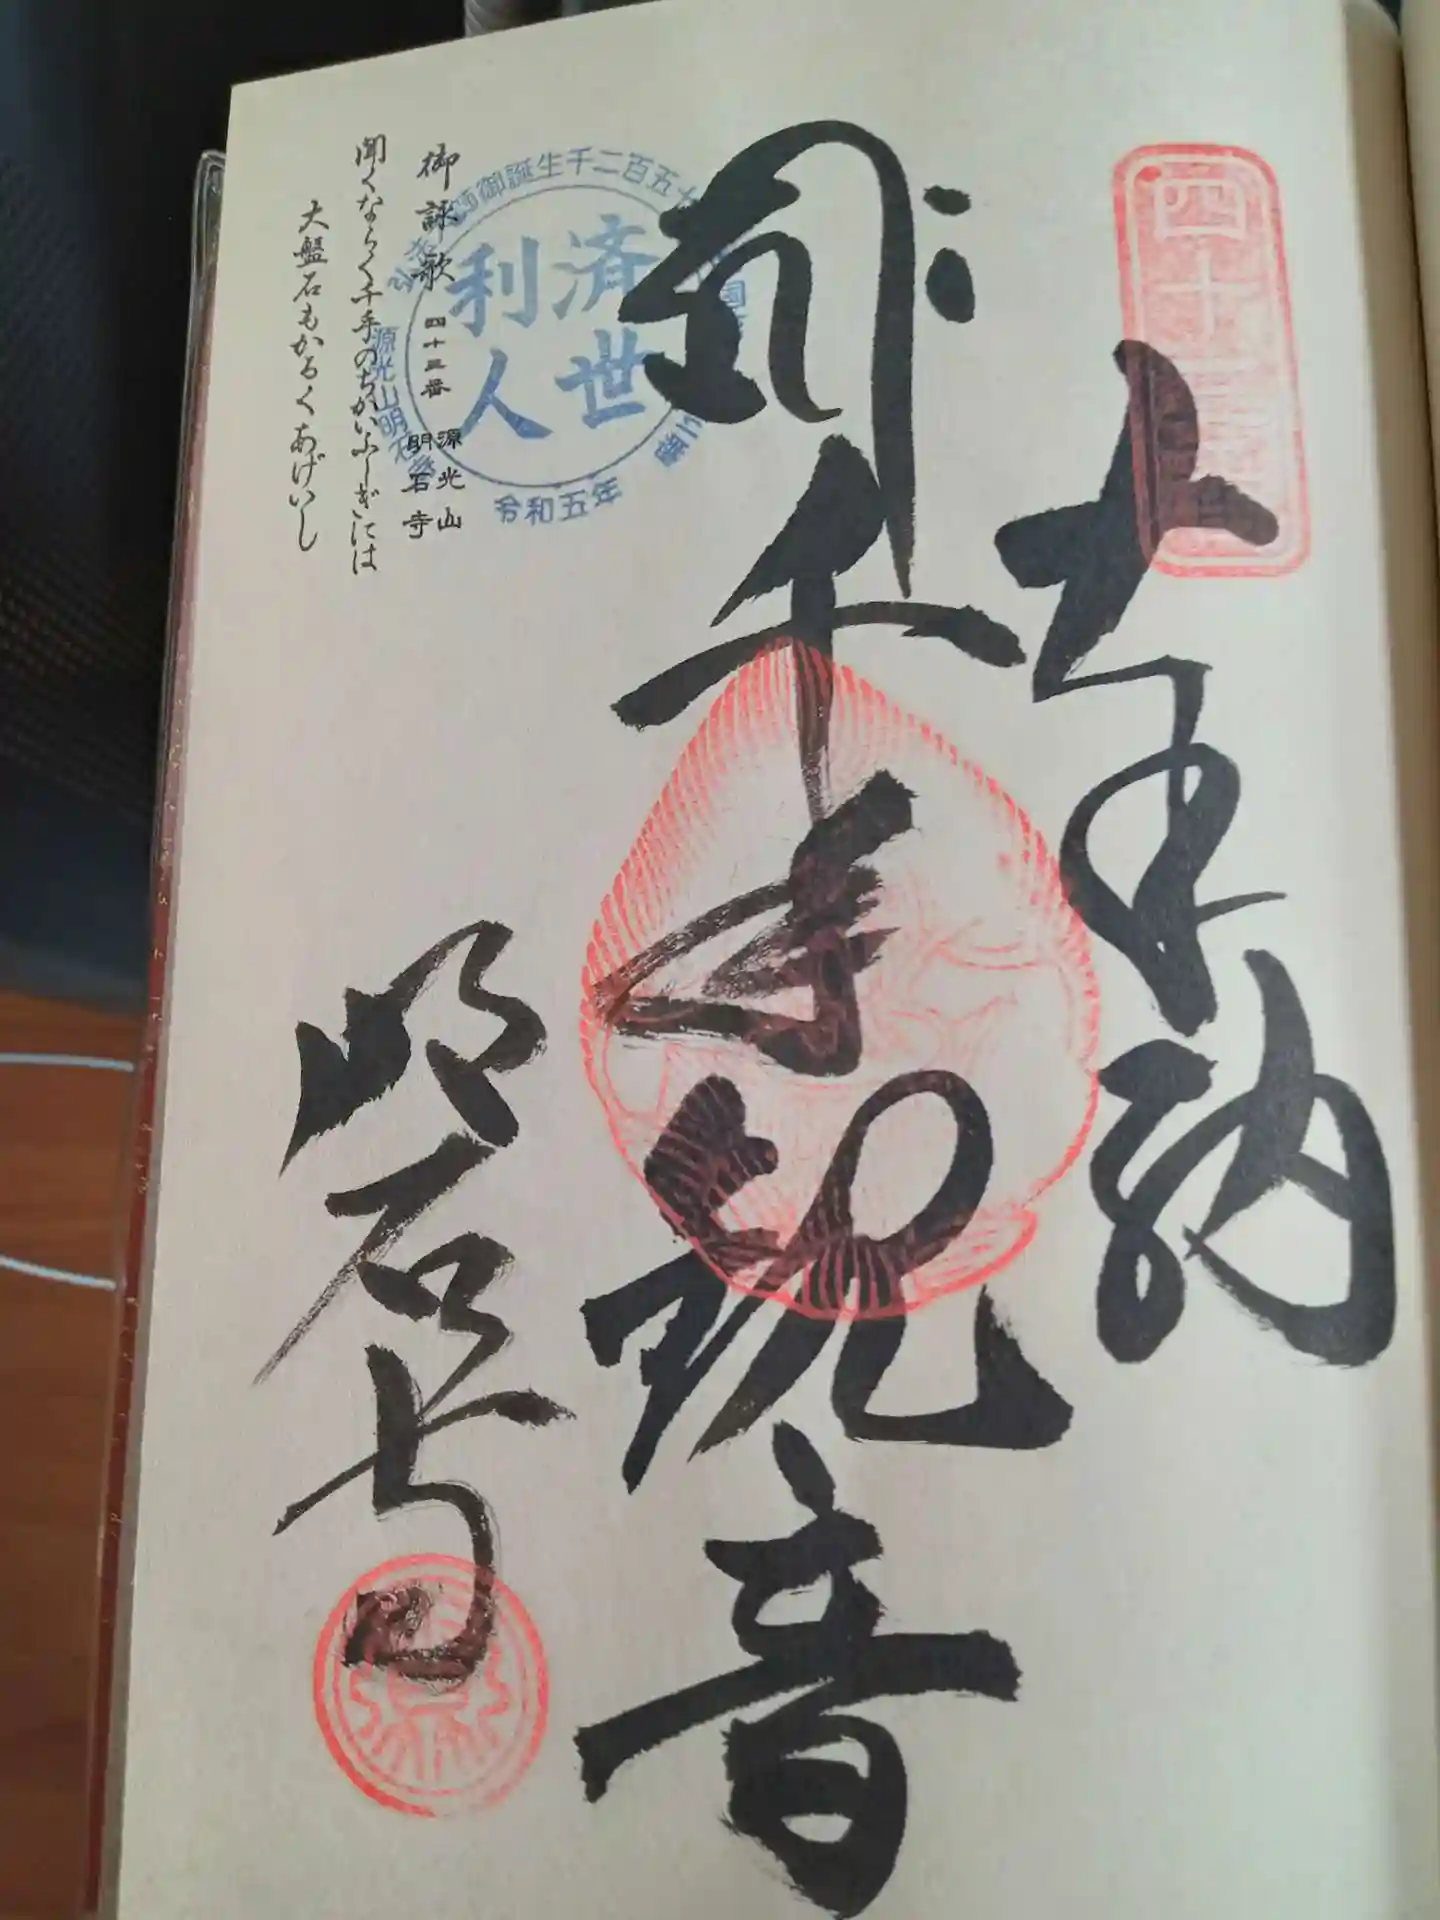 四十三
奉納
千手観音
明石寺
済世
利人
御誕生千二百五十
源光山明石寺
令和五年
御詠歌 四十三番 源光山
明石寺
聞くならく千手のちかいふしぎには
大盤石もかろくあげいし